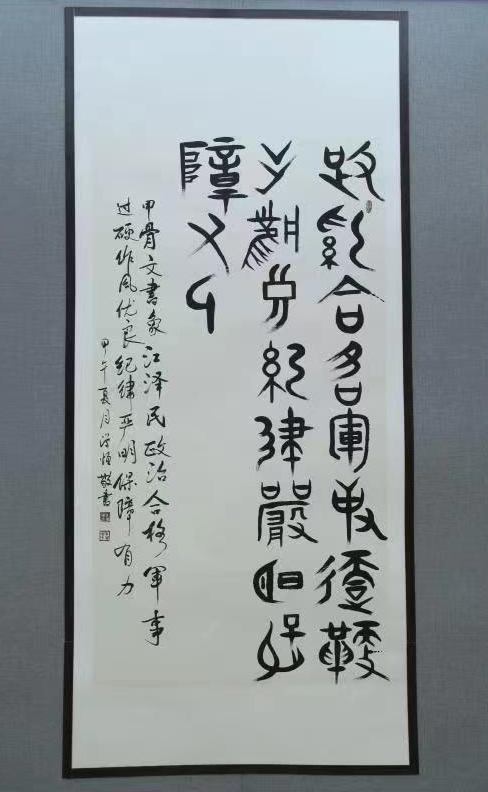 政治合格軍事過硬
作風優良紀律嚴明保
障有力
甲骨文书江泽民政治合格军事
过硬作风优良纪律严明保障有力
甲午夏月敬书